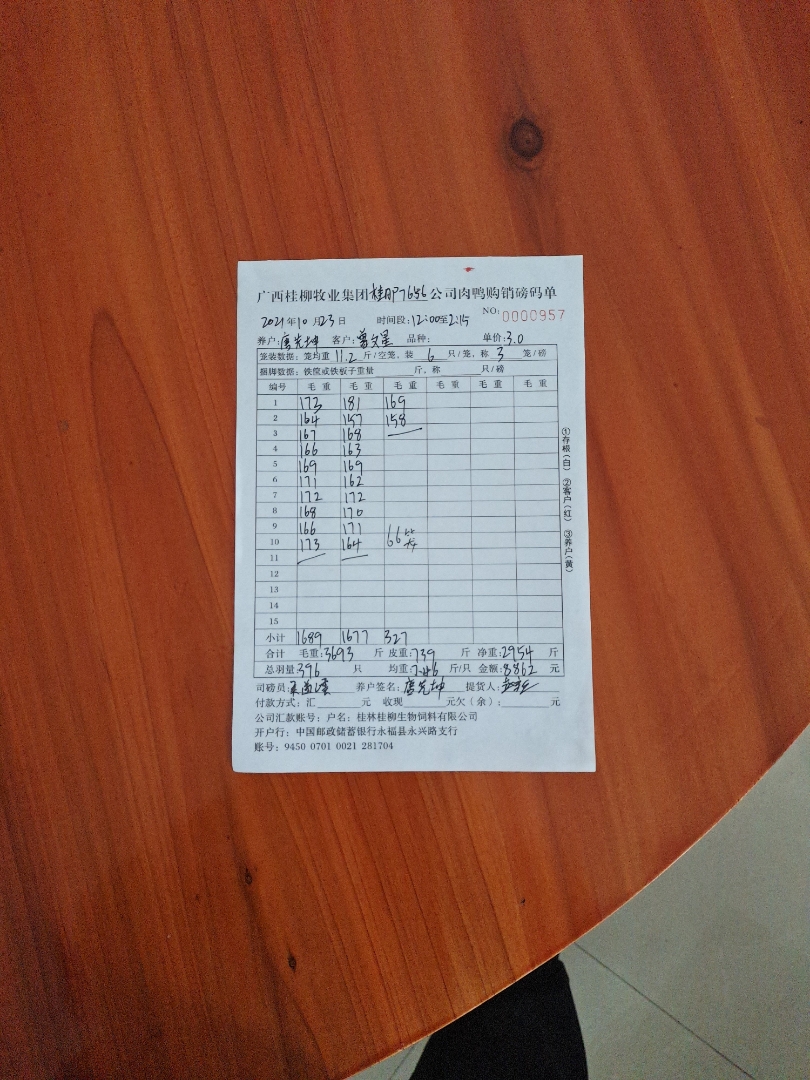 广西桂柳牧业集团桂AP7656公司肉鸭购销磅码单
2021年10月23日 时间段:12:00至2:15 NO:0000957
养户:唐先坤 客户: 品种: 单价:3.0
笼装数据:笼均重11.2斤/空笼,装6只/笼,称3笼/磅
捆脚数据:铁筐或铁板子重量 斤,称 只/磅
编号 毛重 毛重 毛重 毛重 毛重 毛重
1 173 181 169
2 164 157 158
3 167 168
4 166 163
5 169 169
6 171 162
7 172 172
8 168 170
9 166 171
10 173 164 66笼
11
12
13
14
15
小计 1689 1677 327
合计 毛重:3693斤 皮重:739斤 净重:2954斤
总羽量:396只 均重:7.46斤/只 金额:8862元
司磅员: 养户签名:唐先坤 提货人:
付款方式:汇 元 收现 元欠(余): 元
公司汇款账号:户名:桂林桂柳生物饲料有限公司
开户行:中国邮政储蓄银行永福县永兴路支行
账号:9450 0701 0021 281704
①存根(白) ②客户(红) ③养户(黄)